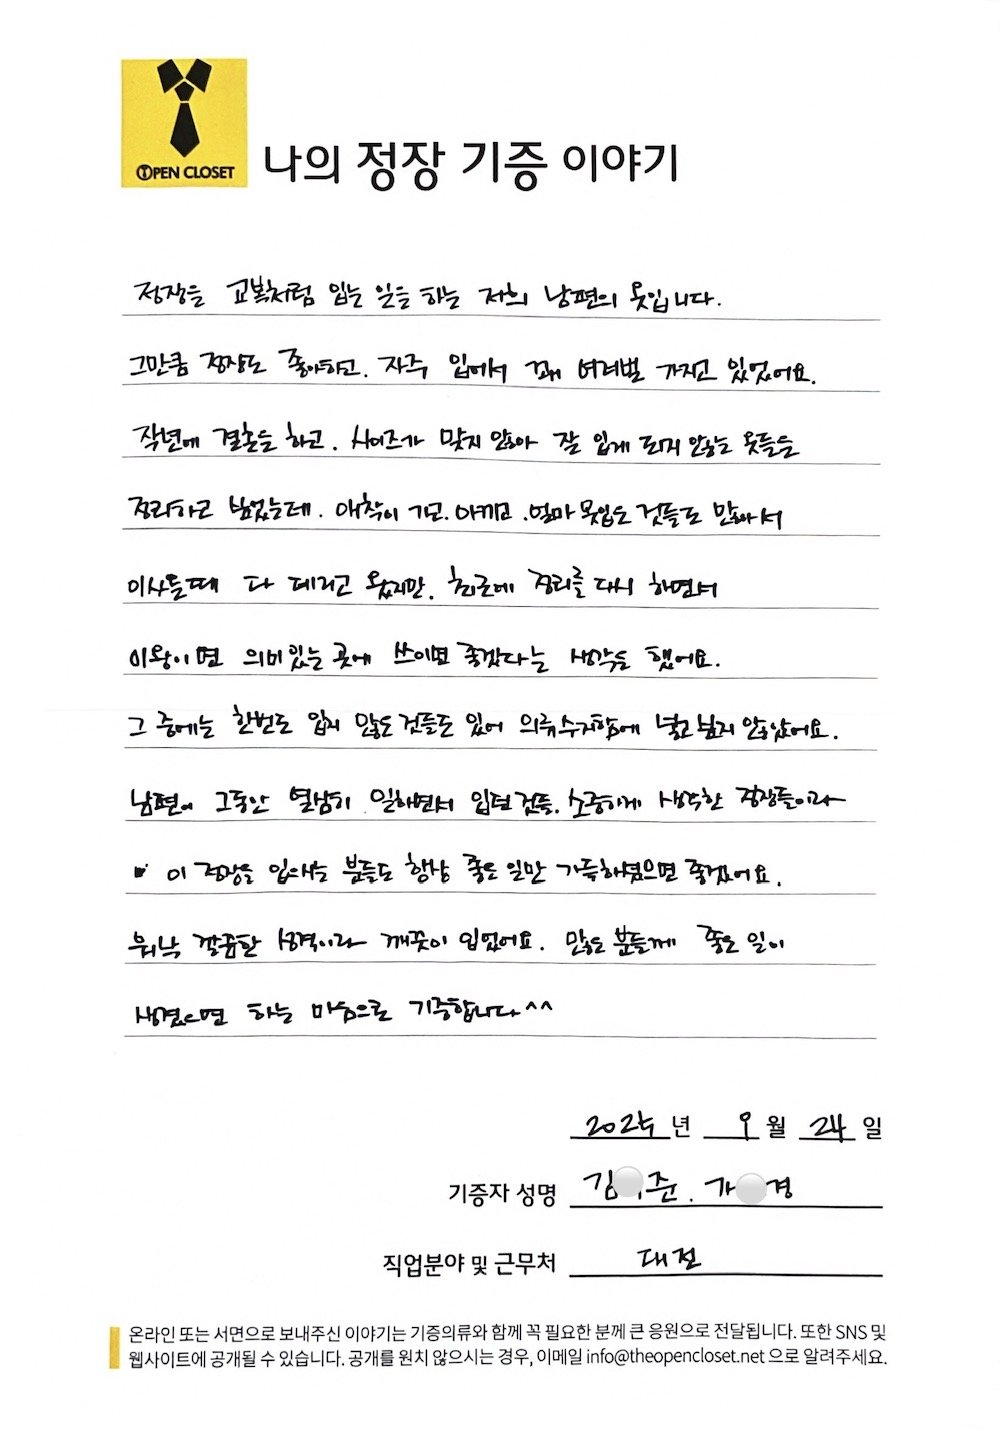 OPEN CLOSET
나의 정장 기증 이야기
정장을 교복처럼 입는 일을 하는 저희 남편의 옷입니다.
그만큼 정장도 좋아하고, 자주 입어서 꽤 여러벌 가지고 있었어요.
작년에 결혼을 하고, 사이즈가 맞지 않아 잘 입게 되지 않는 옷들을
정리하고 싶었는데, 애착이 가고, 아끼고, 얼마 못입은 것들도 많아서
이사올때 다 데리고 왔지만, 최근에 정리를 다시 하면서
이왕이면 의미있는 곳에 쓰이면 좋겠다는 생각을 했어요.
그 중에는 한번도 입지 않은 것들도 있어 의류수거함에 넣고 싶지 않았어요.
남편이 그동안 열심히 일하면서 입던 것들, 소중하게 생각한 정장들이라
이 정장을 입으시는 분들도 항상 좋은 일만 가득하셨으면 좋겠어요.
워낙 깔끔한 성격이라 깨끗이 입었어요. 많은 분들께 좋은 일이
생겼으면 하는 마음으로 기증합니다^^
2024년 9월 24일
기증자 성명 김 준, 가 경
직업분야 및 근무처 대전
온라인 또는 서면으로 보내주신 이야기는 기증의류와 함께 꼭 필요한 분께 큰 응원으로 전달됩니다. 또한 SNS 및
웹사이트에 공개될 수 있습니다. 공개를 원치 않으시는 경우, 이메일 info@theopencloset.net 으로 알려주세요.